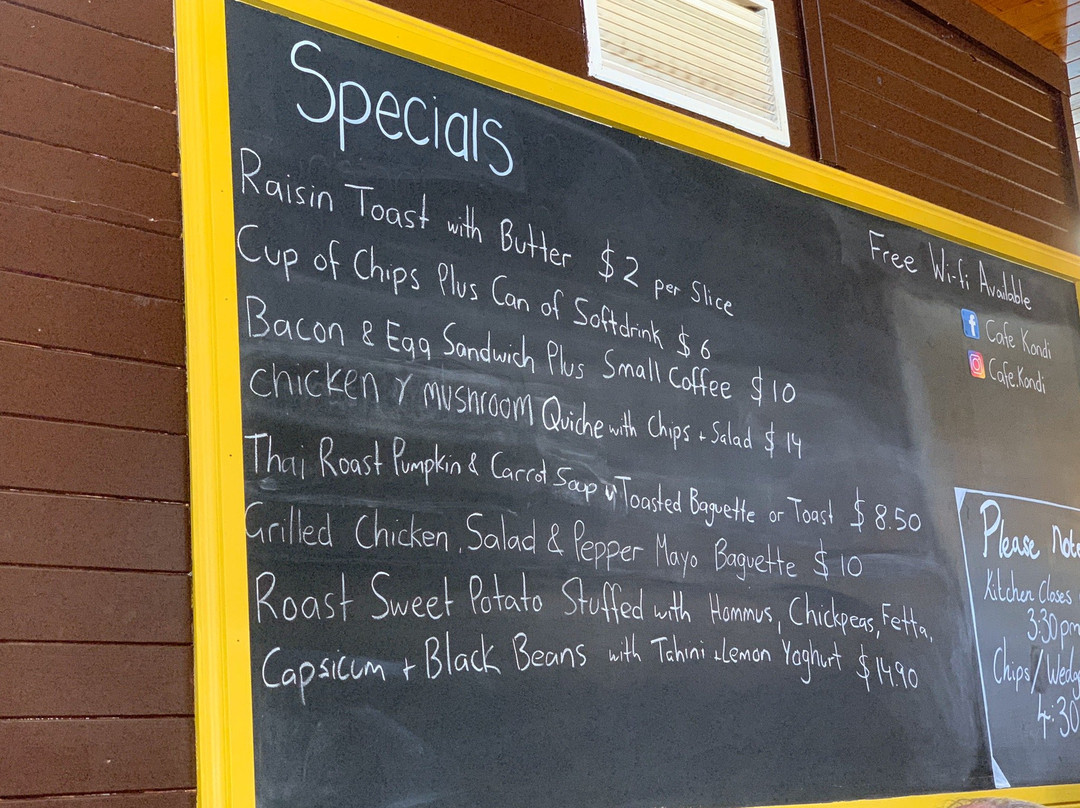 Specials
Raisin Toast with Butter $2 per Slice
Cup of Chips Plus Can of Softdrink $6
Bacon & Egg Sandwich Plus Small Coffee $10
chicken Y MUSHROOM Quiche with Chips + Salad $14
Thai Roast Pumpkin & Carrot Soup w Toasted Baguette or Toast $8.50
Grilled Chicken, Salad & Pepper Mayo Baguette $10
Roast Sweet Potato Stuffed with Hommus, Chickpeas, Fetta,
Capsicum + Black Beans with Tahini + Lemon Yoghurt $14.90
Free Wi-fi Available
f Cafe Kondi
Cafe.Kondi
Please Note
Kitchen Closes
3:30pm
Chips/Wedg
4:30